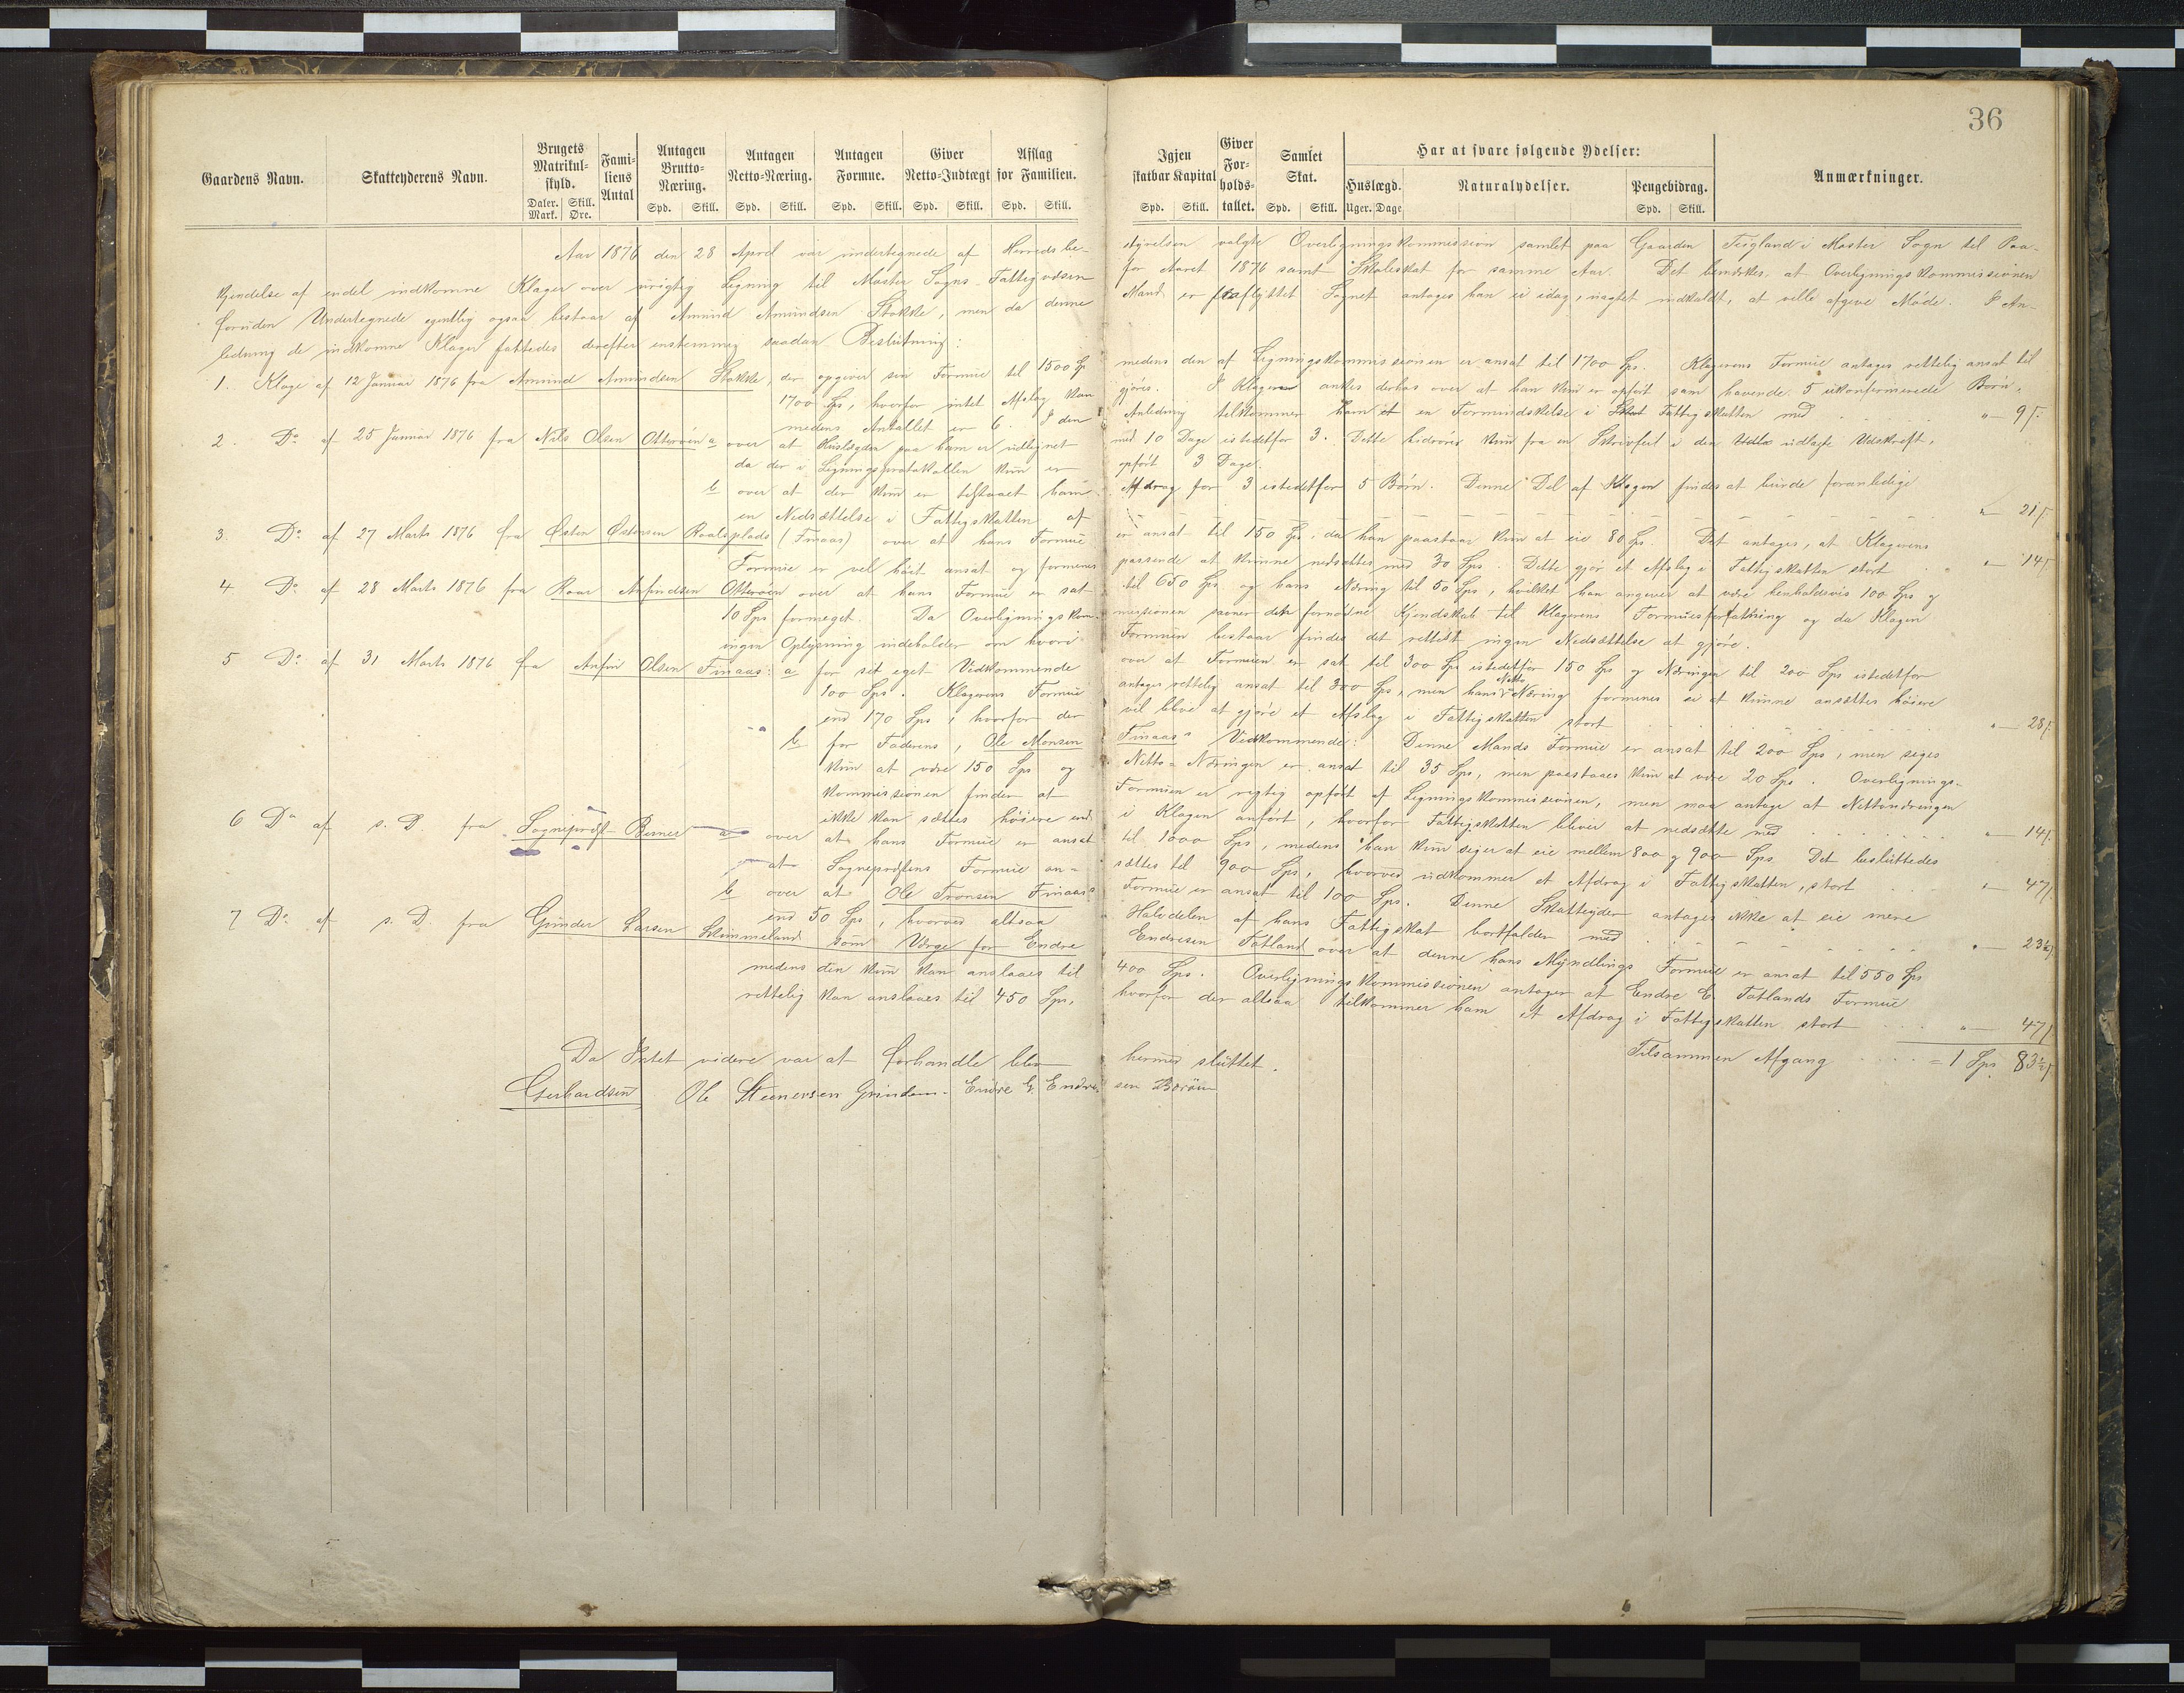 36
Gaardens Navn. Skatteyderens Navn. Brugets Matrikul-skyld. Daler. Mark. Skill. Øre. Fami-liens Antal Antagen Brutto-Næring. Spd. Skill. Antagen Netto-Næring. Spd. Skill. Antagen Formue. Spd. Skill. Giver Netto-Indtægt Spd. Skill. Afslag for Familien. Spd. Skill. Igjen skatbar Kapital Spd. Skill. Giver For-holds-tallet. Samlet Skat. Spd. Skill. Har at svare følgende Ydelser: Huslægd. Uger. Dage Naturalydelser. Pengebidrag. Spd. Skill. Anmærkninger.
Aar 1876 den 28 April var undertegnede af Herredsbe-styrelsen valgte Overligningskommission samlet paa Gaarden Teigland i Moster Sogn til Paa-
kjendelse af endel indkomne Klager over urigtig Ligning til Moster Sogns Fattigvæsen for Aaret 1876 samt Skoleskat for samme Aar. Det bemærkes, at Overligningskommissionen
foruden Undertegnede egentlig ogsaa bestaar af Amund Amundsen Stokke, men da denne Mand er fraflyttet Sognet antages han ei idag, uagtet indkaldt, at ville afgive Møde. I An-
ledning de indkomne Klager fattedes derefter enstemmig saadan Beslutning:
1. Klage af 12 Januar 1876 fra Amund Amundsen Stokke, der opgiver sin Formue til 1500 Sp medens den af Ligningskommissionen er ansat til 1700 Sps. Klagerens Formue antages rettelig ansat til
1700 Sps, hvorfor intet Afslag kan gjøres. I Klagen ankes derhos over at han kun er opført som havende 5 ukonfirmerede Børn,
medens Antallet er 6. I den Anledning tilkommer ham et en Formindskelse i Skat Fattigskatten med " — 9 ſ.
2. Do af 25 Januar 1876 fra Nils Olsen Otterøen a over at Huslægden paa ham er udlignet med 10 Dage istedetfor 3. Dette hidrører kun fra en Skrivfeil i den Udla udlagte Udskrift,
da der i Ligningsprotokollen kun er opført 3 Dage.
b over at der kun er tilstaaet ham Afdrag for 3 istedetfor 5 Børn. Denne Del af Klagen findes at burde foranledige
en Nedsættelse i Fattigskatten af " — 21 ſ.
3. Do af 27 Marts 1876 fra Østen Østensen Roalsplads (Finaas) over at hans Formue er ansat til 150 Sps, da han paastaar kun at eie 80 Sps. Det antages, at Klagerens
Formue er vel høit ansat og formenes passende at kunne nedsættes med 30 Sps. Dette gjør et Afslag i Fattigskatten stort " — 14 ſ
4 Do af 28 Marts 1876 fra Roar Anfindsen Otterøen over at hans Formue er sat til 650 Sps og hans Næring til 50 Sps, hvilket han angiver at være henholdsvis 100 Sps og
10 Sps formeget. Da Overligningskom-missionen savner den fornødne Kjendskab til Klagerens Formuesforfatning og da Klagen
ingen Oplysning indeholder om hvori Formuen bestaar findes det rettest ingen Nedsættelse at gjøre.
5 Do af 31 Marts 1876 fra Anfin Olsen Finaas: a for sit eget Vedkommende over at Formuen er sat til 300 Sps istedetfor 150 Sps og Næringen til 200 Sps istedetfor
100 Sps. Klagerens Formue antages rettelig ansat til 300 Sps, men hans Netto Næring formenes ei at kunne ansættes høiere
end 170 Sps, hvorfor der vil blive at gjøre et Afslag i Fattigskatten stort " — 28 ſ.
b for Faderens, Ole Monsen Finaas' Vedkommende: Denne Mands Formue er ansat til 200 Sps, men siges
kun at være 150 Sps og Netto-Næringen er ansat til 35 Sps, men paastaaes kun at være 20 Sps. Overlignings-
kommissionen finder at Formuen er rigtig opført af Ligningskommissionen, men maa antage at Nettonæringen
ikke kan sættes høiere end i Klagen anført, hvorfor Fattigskatten bliver at nedsætte med " — 14 ſ.
6 Do af s. D. fra Sogneprest Berner a over at hans Formue er ansat til 1000 Sps, medens han kun siger at eie mellem 800 og 900 Sps. Det besluttedes
at Sogneprestens Formue an-sættes til 900 Sps, hvorved udkommer et Afdrag i Fattigskatten, stort " — 47 ſ.
b over at Ole Tronsen Finaas' Formue er ansat til 100 Sps. Denne Skatteyder antages ikke at eie mere
end 50 Sps, hvorved altsaa Halvdelen af hans Fattigskat bortfalder med " — 23½ ſ
7 Do af s. D. fra Gunder Larsen Skimmeland som Værge for Endre Endresen Totland over at denne hans Myndlings Formue er ansat til 550 Sps
medens den kun kan anslaaes til 400 Sps. Overligningskommissionen antager at Endre E. Totlands Formue
rettelig kan anslaaes til 450 Sps, hvorfor der altsaa tilkommer ham et Afdrag i Fattigskatten stort " — 47 ſ
Tilsammen Afgang = 1 Sps 83½ ſ
Da Intet videre var at forhandle blev hermed sluttet.
Gerhardsen Ole Steenersen Grindem. Endre G. Endresen